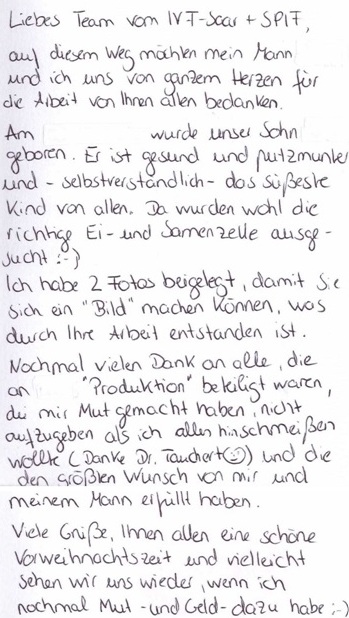 Liebes Team vom IVF-Saar + SPIF,
auf diesem Weg möchten mein Mann
und ich uns von ganzem Herzen für
die Arbeit von Ihnen allen bedanken.
Am wurde unser Sohn
geboren. Er ist gesund und putzmunter
und - selbstverständlich - das süßeste
Kind von allen. Da wurden wohl die
richtige Ei- und Samenzelle ausge-
sucht :-)
Ich habe 2 Fotos beigelegt, damit Sie
sich ein "Bild" machen können, was
durch Ihre Arbeit entstanden ist.
Nochmal vielen Dank an alle, die
an "Produktion" beteiligt waren,
die mir Mut gemacht haben, nicht
aufzugeben als ich alles hinschmeißen
wollte (Danke Dr. Tauchert☺) und die
den größten Wunsch von mir und
meinem Mann erfüllt haben.
Viele Grüße, Ihnen allen eine schöne
Vorweihnachtszeit und vielleicht
sehen wir uns wieder, wenn ich
nochmal Mut - und Geld - dazu habe ;-)